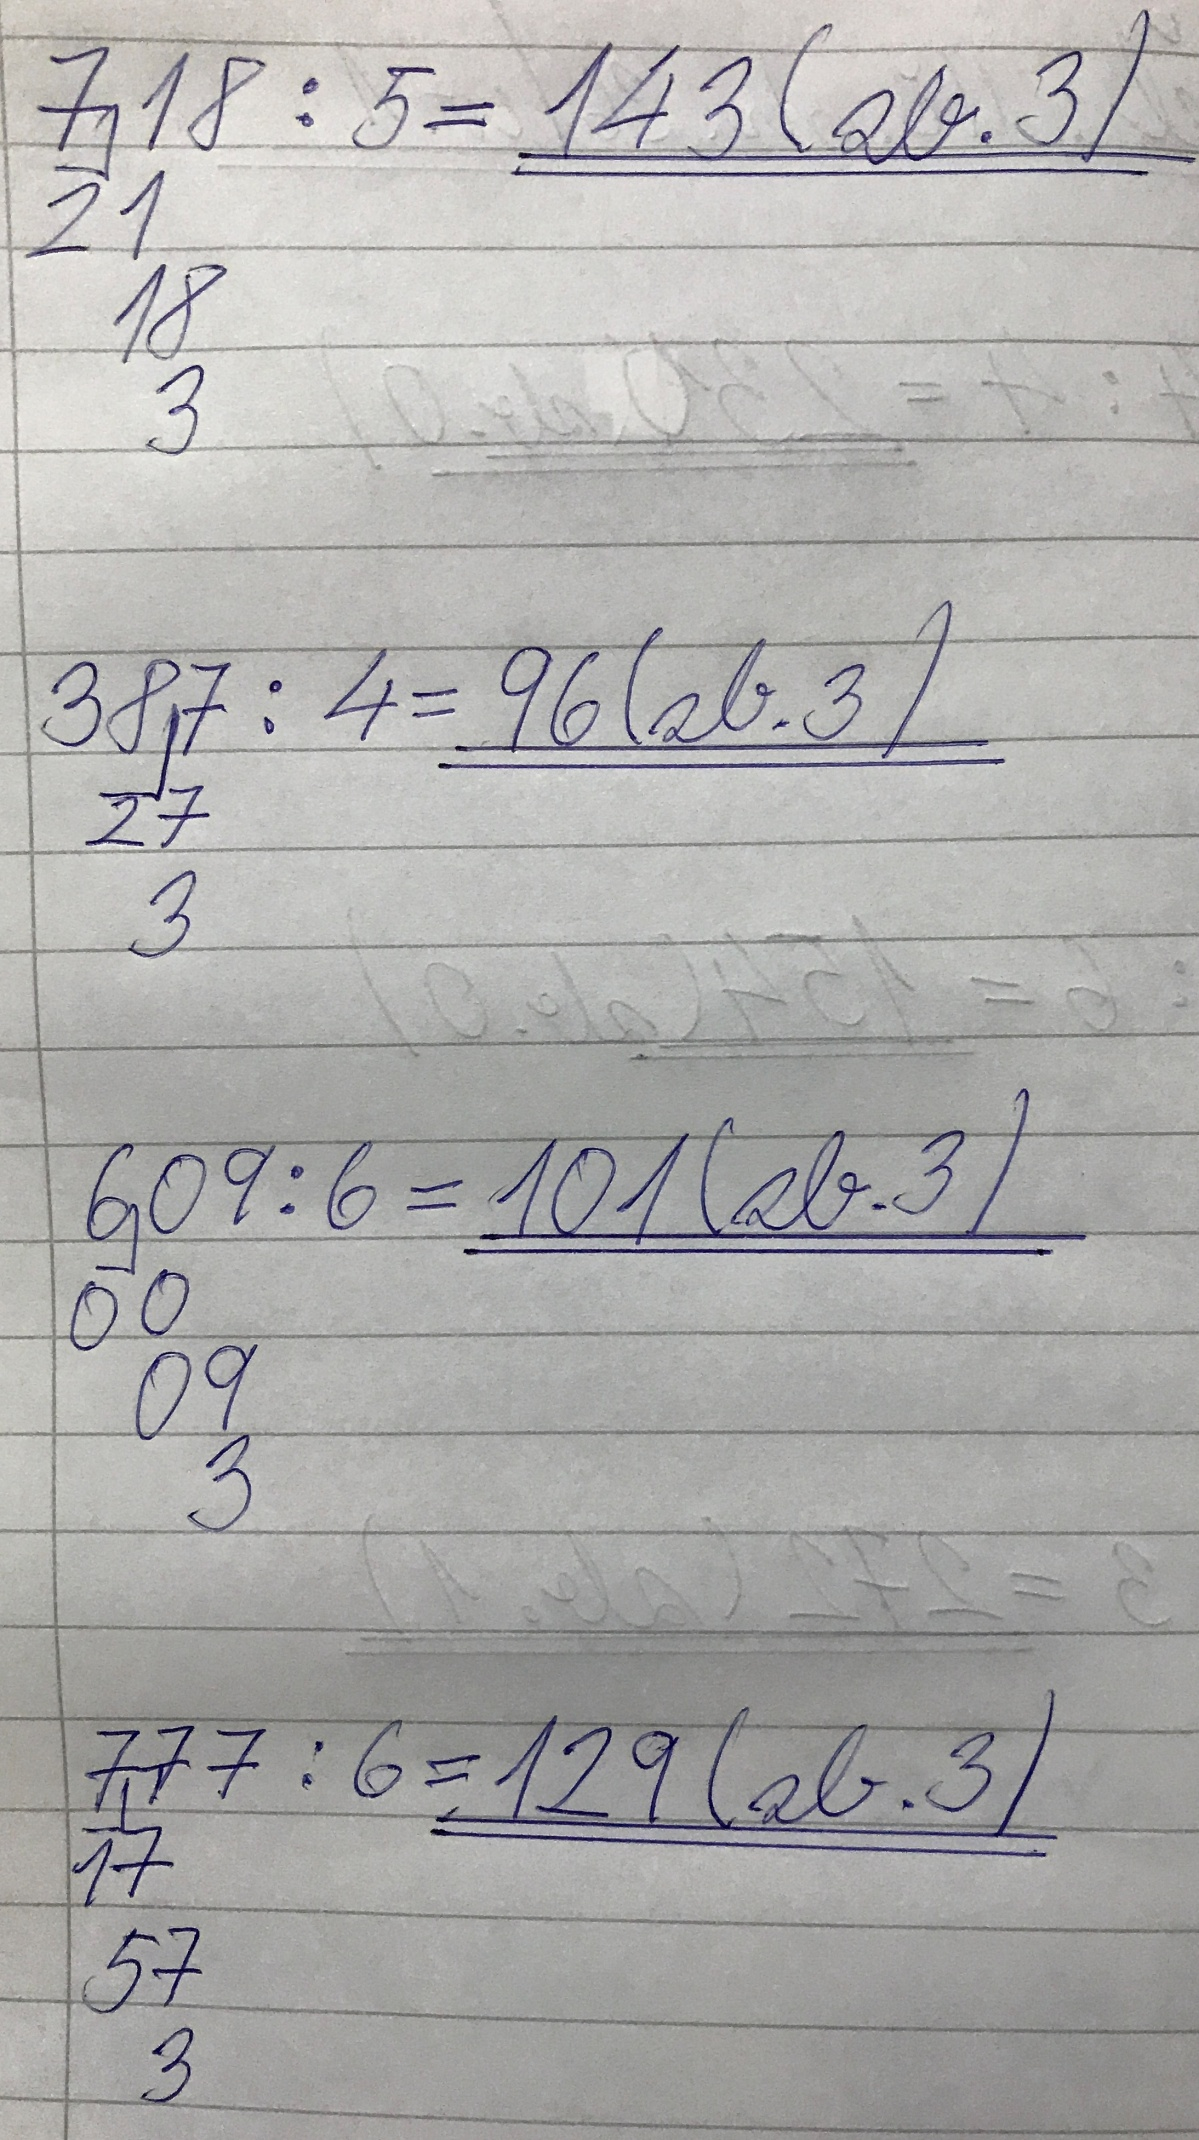 718 : 5 = 143 (zb. 3)
21
18
3
387 : 4 = 96 (zb. 3)
27
3
609 : 6 = 101 (zb. 3)
00
09
3
777 : 6 = 129 (zb. 3)
17
57
3